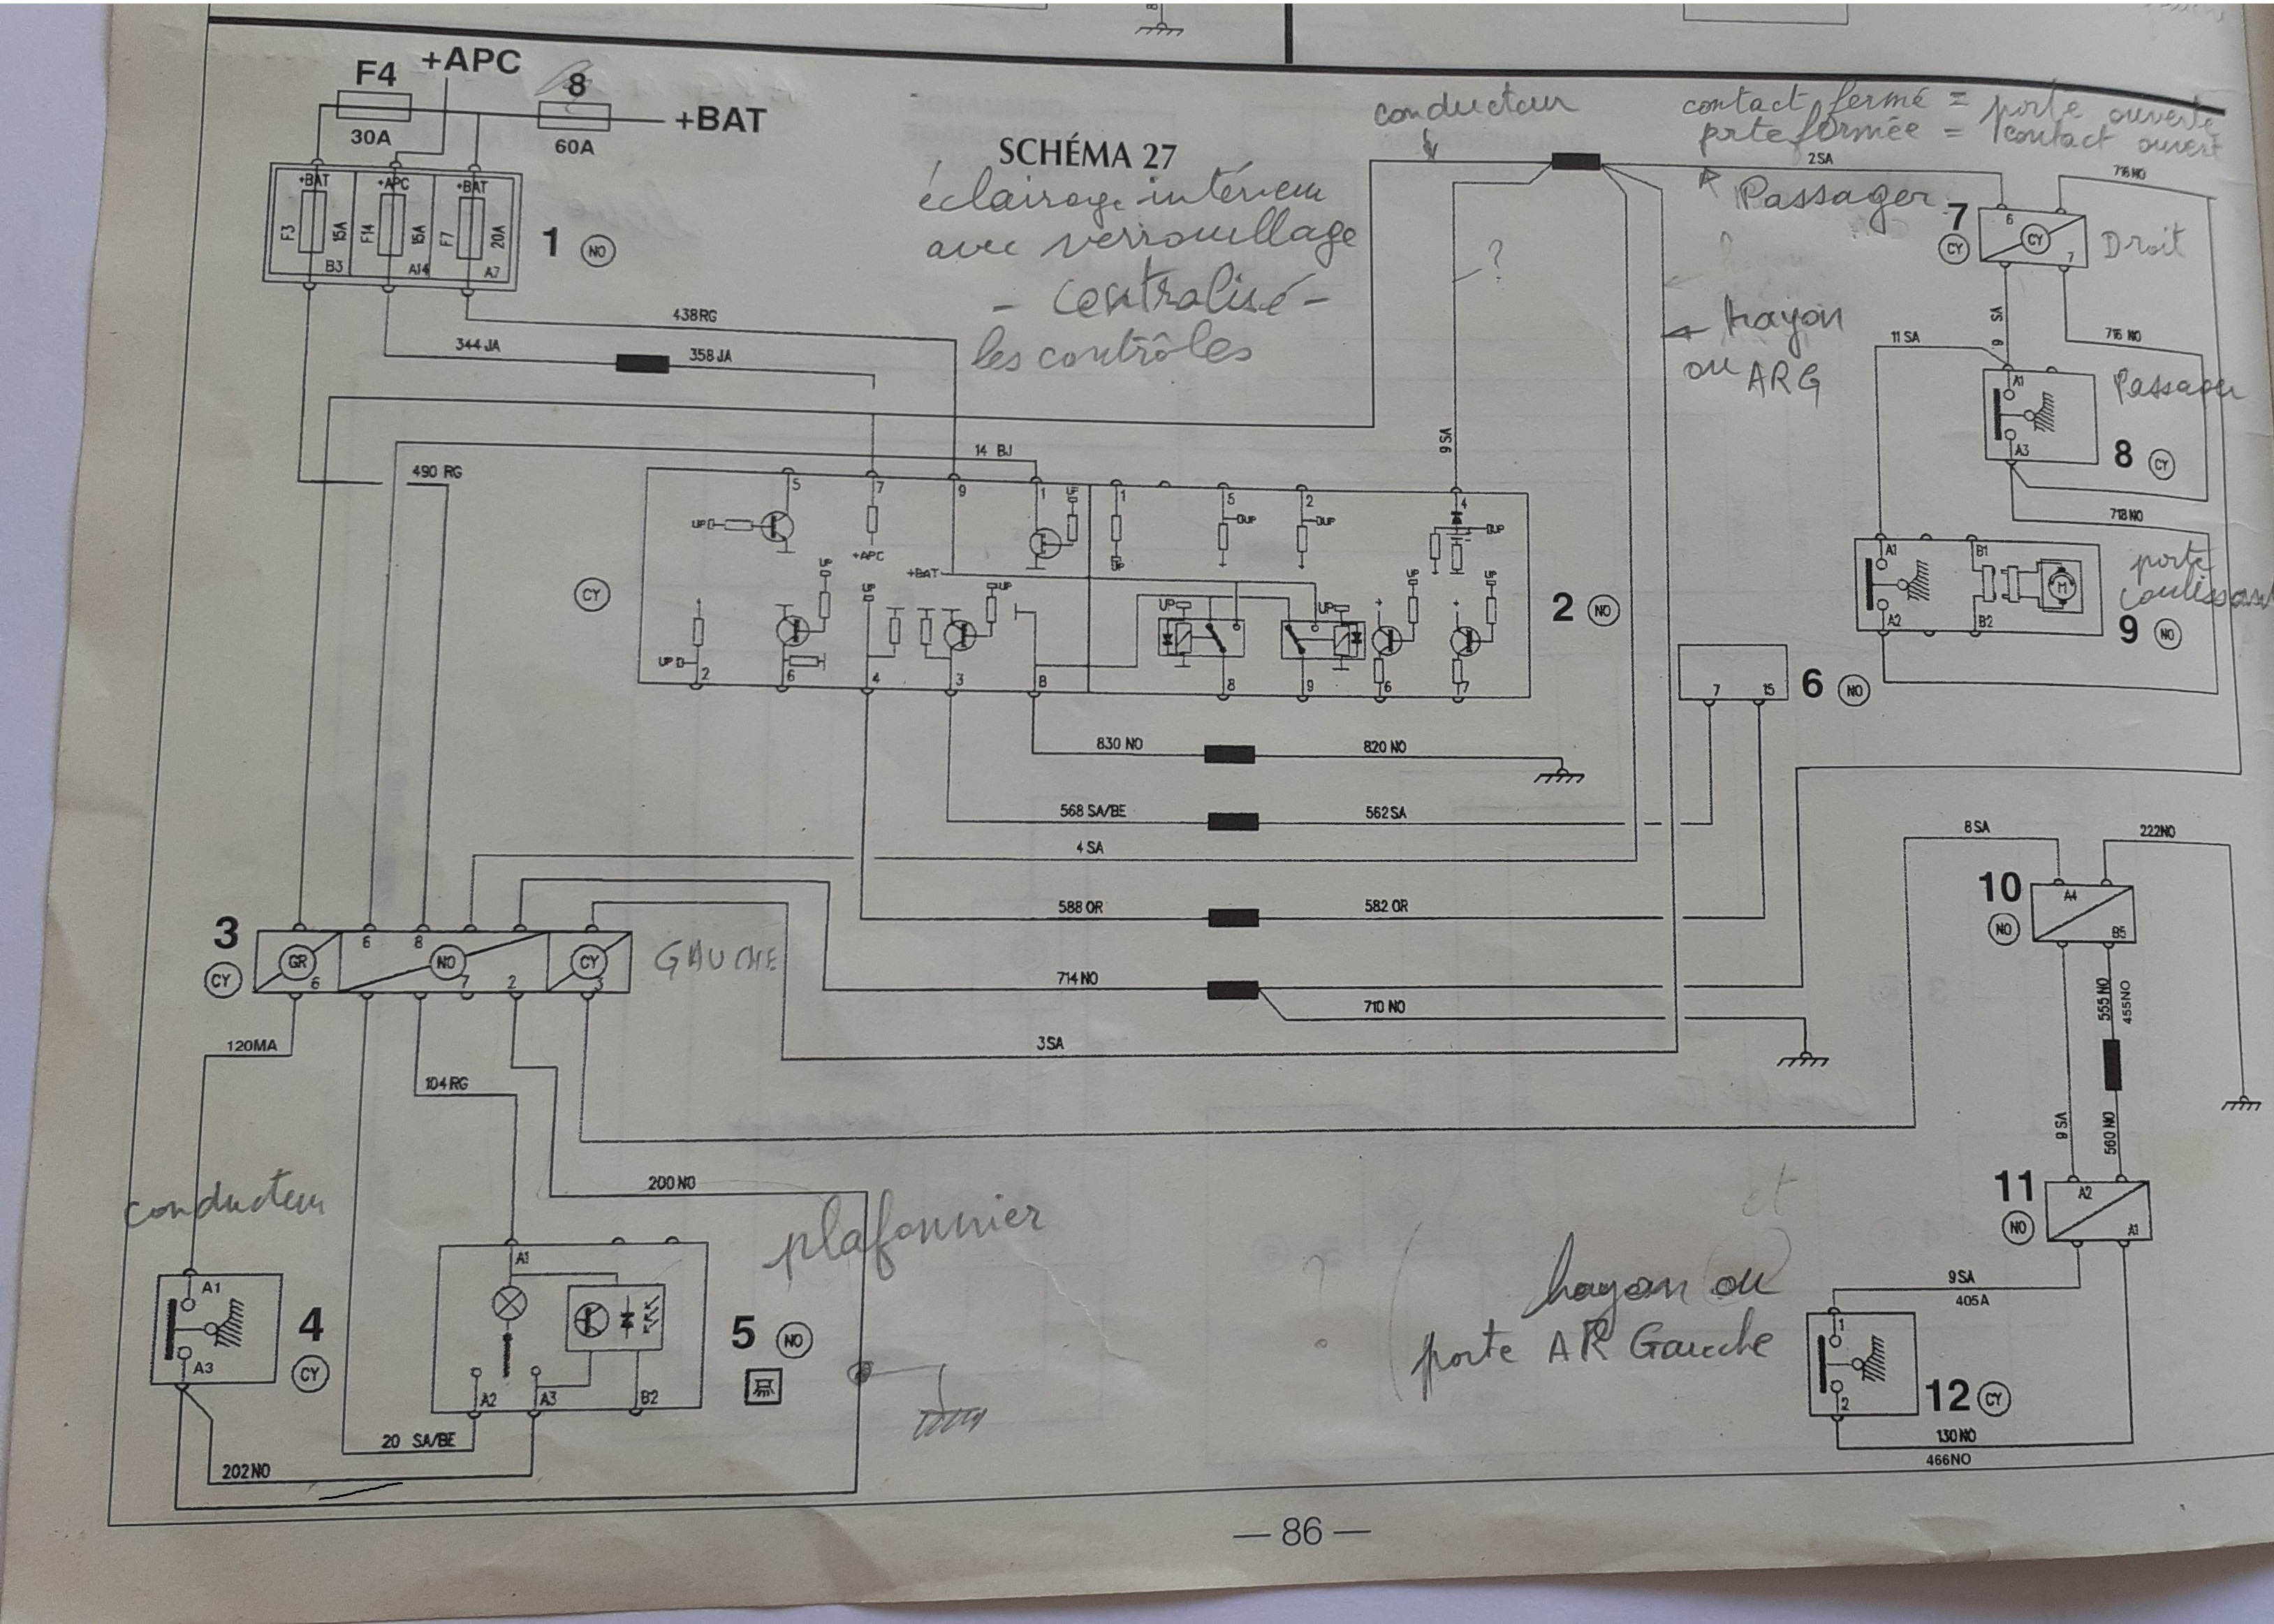 F4
+APC
8
+BAT
30A
60A
SCHÉMA 27
éclairage intérieur
avec verrouillage
- Centralisé -
les contrôles
conducteur
contact fermé = porte ouverte
prte fermée = contact ouvert
2 SA
Passager
716 NO
+BAT
+APC
+BAT
F3
15A
F14
15A
F7
20A
B3
A14
A7
1
NO
?
7
CY
6
CY
7
Droit
hayon
ou ARG
438RG
344 JA
358 JA
9 SA
9 SA
11 SA
716 NO
A1
A3
Passager
8
CY
718 NO
14 BJ
490 RG
CY
5
7
9
1
UP
1
5
2
4
UP
+APC
UP
UP
UP
UP
+BAT
UP
UP
UP
UP
UP
UP
UP
UP
UP
2
6
4
3
8
8
9
6
7
2
NO
A1
B1
M
A2
B2
porte
coulissant
9
NO
7
15
6
NO
830 NO
820 NO
568 SA/BE
562 SA
4 SA
588 OR
582 OR
714 NO
710 NO
3 SA
8 SA
222NO
3
CY
GR
6
6
8
NO
7
2
CY
3
GAUCHE
10
NO
A4
B5
555 NO
455NO
9 SA
560 NO
120MA
104 RG
200 NO
conducteur
plafonnier
11
NO
A2
A1
et
hayon ou
porte AR Gauche
?
9 SA
405A
A1
A3
4
CY
A1
A2
A3
B2
5
NO
1
2
12
CY
130 NO
466NO
20 SA/BE
202 NO
— 86 —